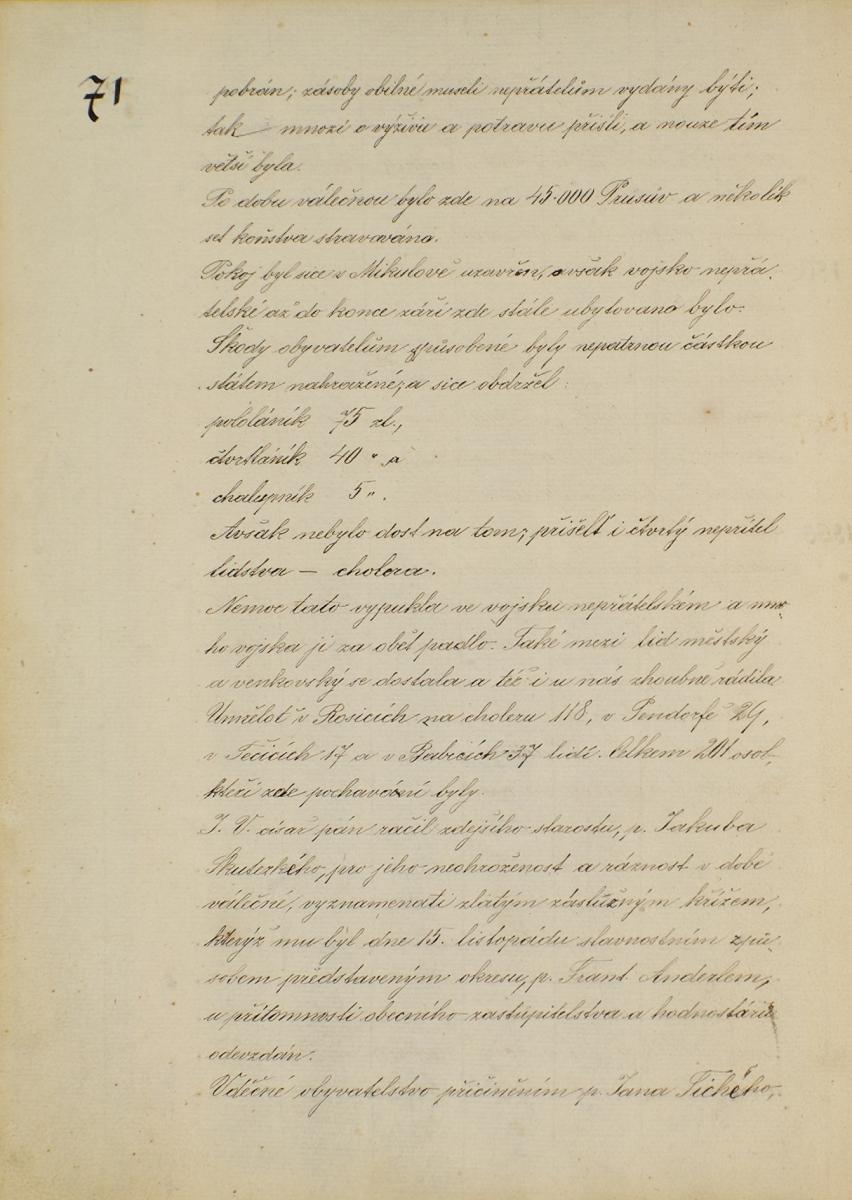 71
pobrán; zásoby obilné museli nepřátelům vydány býti;
tak mnozí o výživu a potravu přišli, a nouze tím
větší byla.
Po dobu válečnou bylo zde na 45.000 Prusův a několik
set koňstva stravováno.
Pokoj byl sice v Mikulově uzavřen, avšak vojsko nepřá-
telské až do konce září zde stále ubytováno bylo.
Škody obyvatelům způsobené byly nepatrnou částkou
státem nahražené; a sice obdržel:
pololáník 75 zl.,
čtvrtláník 40 " a
chalupník 5 ".
Avšak nebylo dost na tom; přišelť i čtvrtý nepřítel
lidstva — cholera.
Nemoc tato vypukla ve vojsku nepřátelském a mno-
ho vojska jí za oběť padlo. Také mezi lid městský
a venkovský se dostala a též i u nás zhoubně řádila.
Umřeloť v Rosicích na choleru 118, v Pendorfě 29,
v Tečicích 17 a v Babicích 37 lidí. Celkem 201 osob,
kteří zde pochováni byly.
J. V. císař pán ráčil zdejšího starostu, p. Jakuba
Skuteckého, pro jeho neohroženost a ráznost v době
válečné, vyznamenati zlatým záslužným křížem,
kterýž mu byl dne 15. listopadu slavnostním způ-
sobem představeným okresu, p. Frant. Anderlem,
u přítomnosti obecního zastupitelstva a hodnostářů
odevzdán.
Vděčné obyvatelstvo přičiněním p. Jana Tichého,